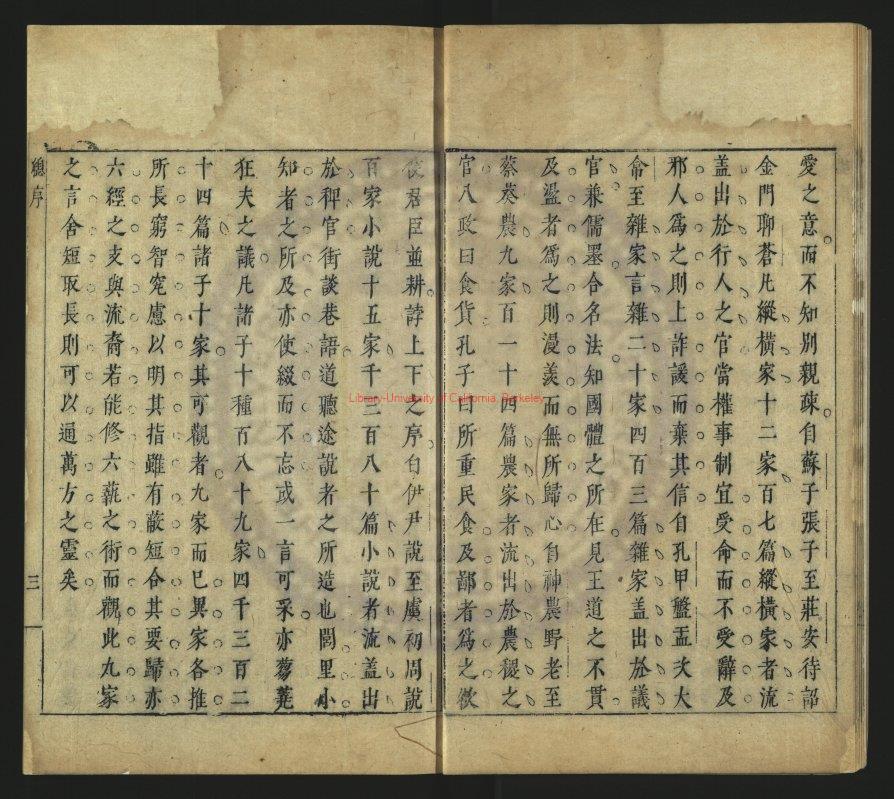 愛之意而不知別親疎自蘇子張子至莊安待詔
金門聊蒼凡縱橫家十二家百七篇縱橫家者流
蓋出於行人之官當權事制宜受命而不受辭及
邪人爲之則上詐諼而棄其信自孔甲盤盂次大
命至雜家言雜二十家四百三篇雜家蓋出於議
官兼儒墨合名法知國體之所在見王道之不貫
及盪者爲之則漫羨而無所歸心自神農野老至
蔡癸農九家百一十四篇農家者流出於農稷之
官八政曰食貨孔子曰所重民食及鄙者爲之欲
使君臣並耕誖上下之序自伊尹說至虞初周說
百家小說十五家千三百八十篇小說者流蓋出
於稗官街談巷語道聽途說者之所造也閭里小
知者之所及亦使綴而不忘或一言可采亦蒭蕘
狂夫之議凡諸子十種百八十九家四千三百二
十四篇諸子十家其可觀者九家而已異家各推
所長窮智究慮以明其指雖有蔽短合其要歸亦
六經之支與流裔若能修六蓺之術而觀此九家
之言舍短取長則可以通萬方之靈矣
總序
三
Library-University of California, Berkeley